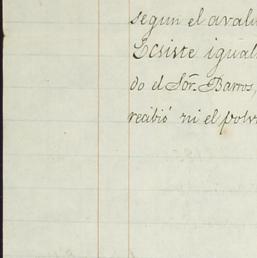 segun el avalu
Ecsiste igual
do el Sōr. Barros,
recibió ni el polv